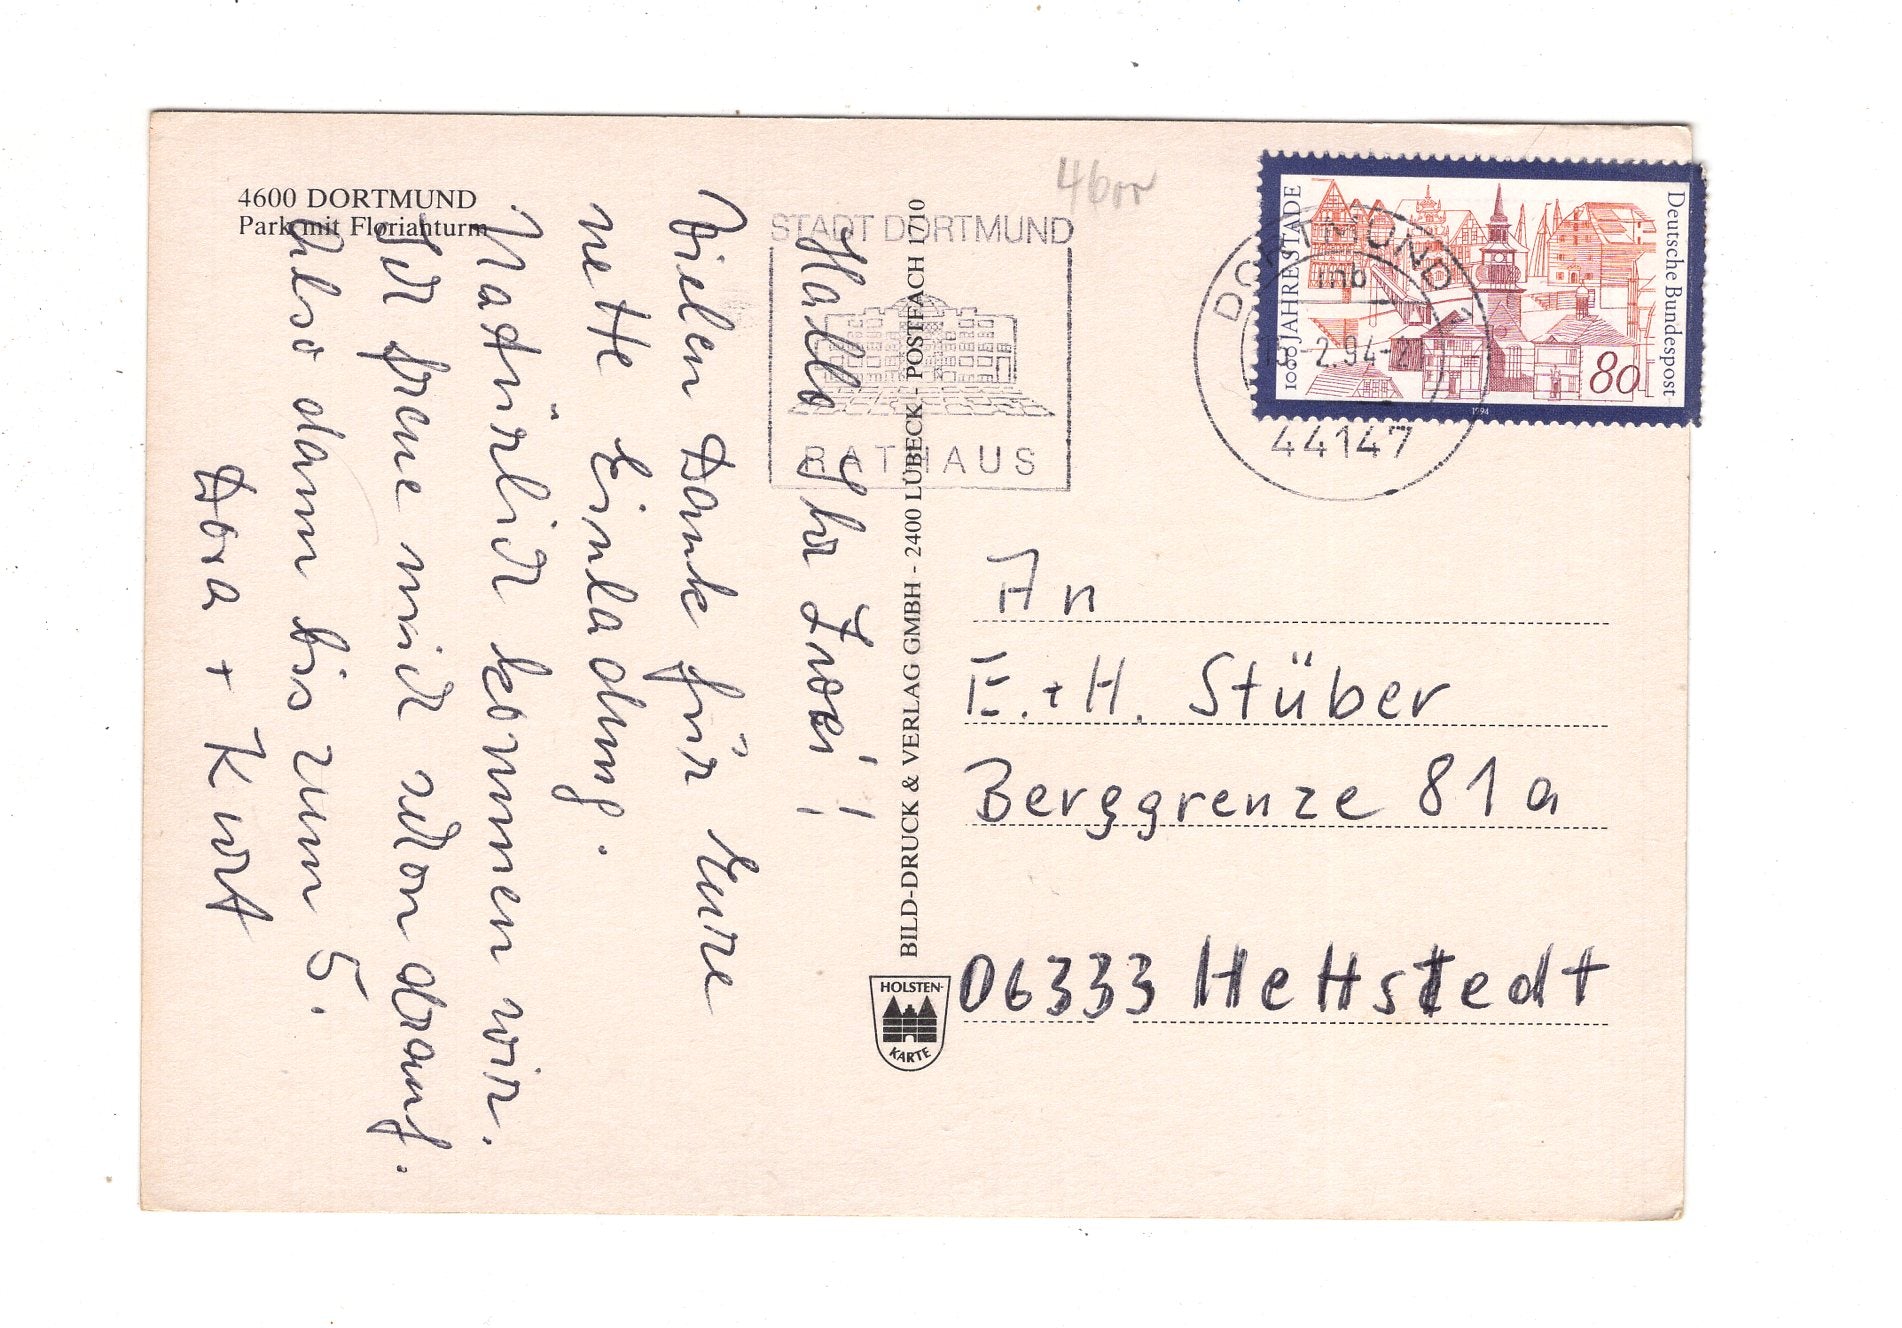 4600 DORTMUND
Park mit Florianturm
Hallo Ihr Zwei!
Vielen Dank für Eure
nette Einladung.
Natürlich kommen wir.
Ich freue mich schon drauf.
Also dann bis zum 5.
Dora + Kurt
STADT DORTMUND
RATHAUS
BILD-DRUCK & VERLAG GMBH - 2400 LÜBECK - POSTFACH 1710
HOLSTEN-
KARTE
1000 JAHRE STADE
Deutsche Bundespost
80
1994
DORTMUND 1
mb
-2.94-
44147
An
E. + H. Stüber
Berggrenze 81a
06333 Hettstedt